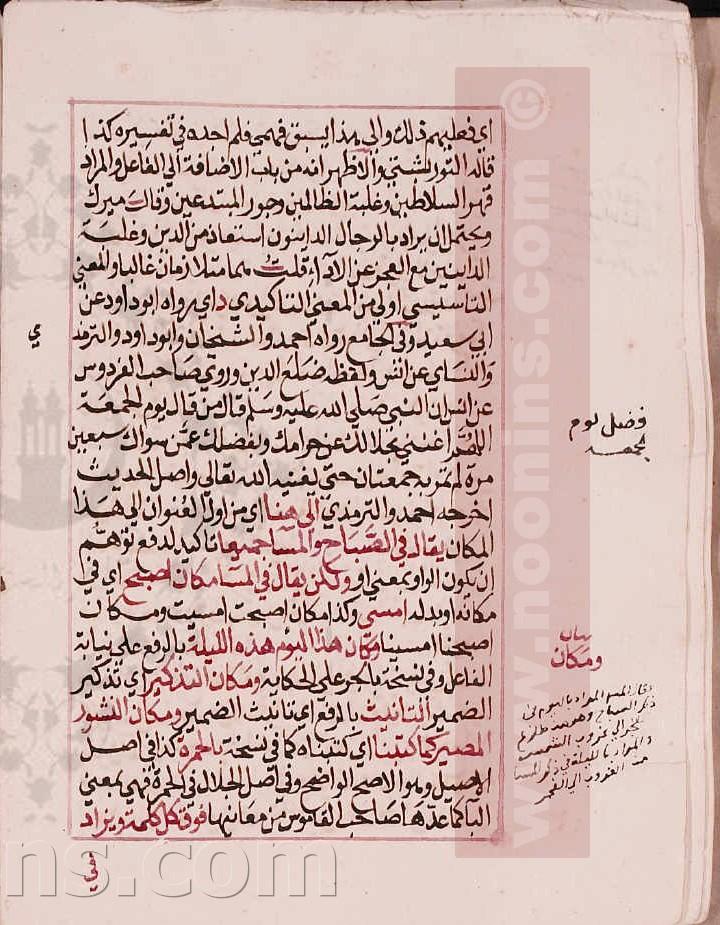 اي فعلبهم ذلك والي هذا يسبق فهمي فلم اجده في تفسيره كذا
قاله التوربشتي والاظهر انه من باب الاضافة الي الفاعل والمراد
قهر السلاطين وغلبة الظالمين وجور المبتدعين وقال ميرك
ويحتمل ان يراد بالرجال الداينون استعاذ من الدين وغلبة
الداينين مع العجز عن الاداء قلت هما متلازمان غالبا والمعني
التاسيسي اولي من المعني التاكيدي د اي رواه ابوداود عن
ابي سعيد وفي الجامع رواه احمد والشيخان وابوداود والترمذ
والنساي عن انس ولفظه ضلع الدين وروي صاحب الفردوس
عن انس ان النبي صلي الله عليه وسلم قال من قال يوم الجمعة
اللهم اغنني بحلالك عن حرامك وبفضلك عمن سواك سبعين
مرة لم تمر به جمعتان حتي يغنيه الله تعالي واصل الحديث
اخرجه احمد والترمذي الي هنا اي من اول العنوان الي هذا
المكان يقال في الصباح والمسا جميعا تاكيد لدفع توهم
ان يكون الواو بمعني او ولكن يقال في المسا مكان اصبح اي في
مكانه او بدله امسي وكذا مكان اصبحت امسيت ومكان
اصبحنا امسينا ومكان هذا اليوم هذه الليلة بالرفع علي نيابة
الفاعل وفي نسخة بالجر علي الحكاية ومكان التذكير اي تذكير
الضمير التانيث بالرفع اي تانيث الضمير ومكان النشور
المصير كما كتبنا اي كتبناه كما في نسخة بالحمرة كذا في اصل
الاصيل وهو الاصح الواضح وفي اصل الجلال في الحمرة فهي بمعني
البا كما عدها صاحب القاموس من معانيها فوق كل كلمة ويزاد
في
فضل يوم
الجمعه
ومكان
المراد باليوم في
ذكر الصباح وهو من طلوع
الفجر الي غروب الشمس
والمراد بالليلة في ذكر المسا
من الغروب الي الفجر
www.noonins.com ©
ns.com